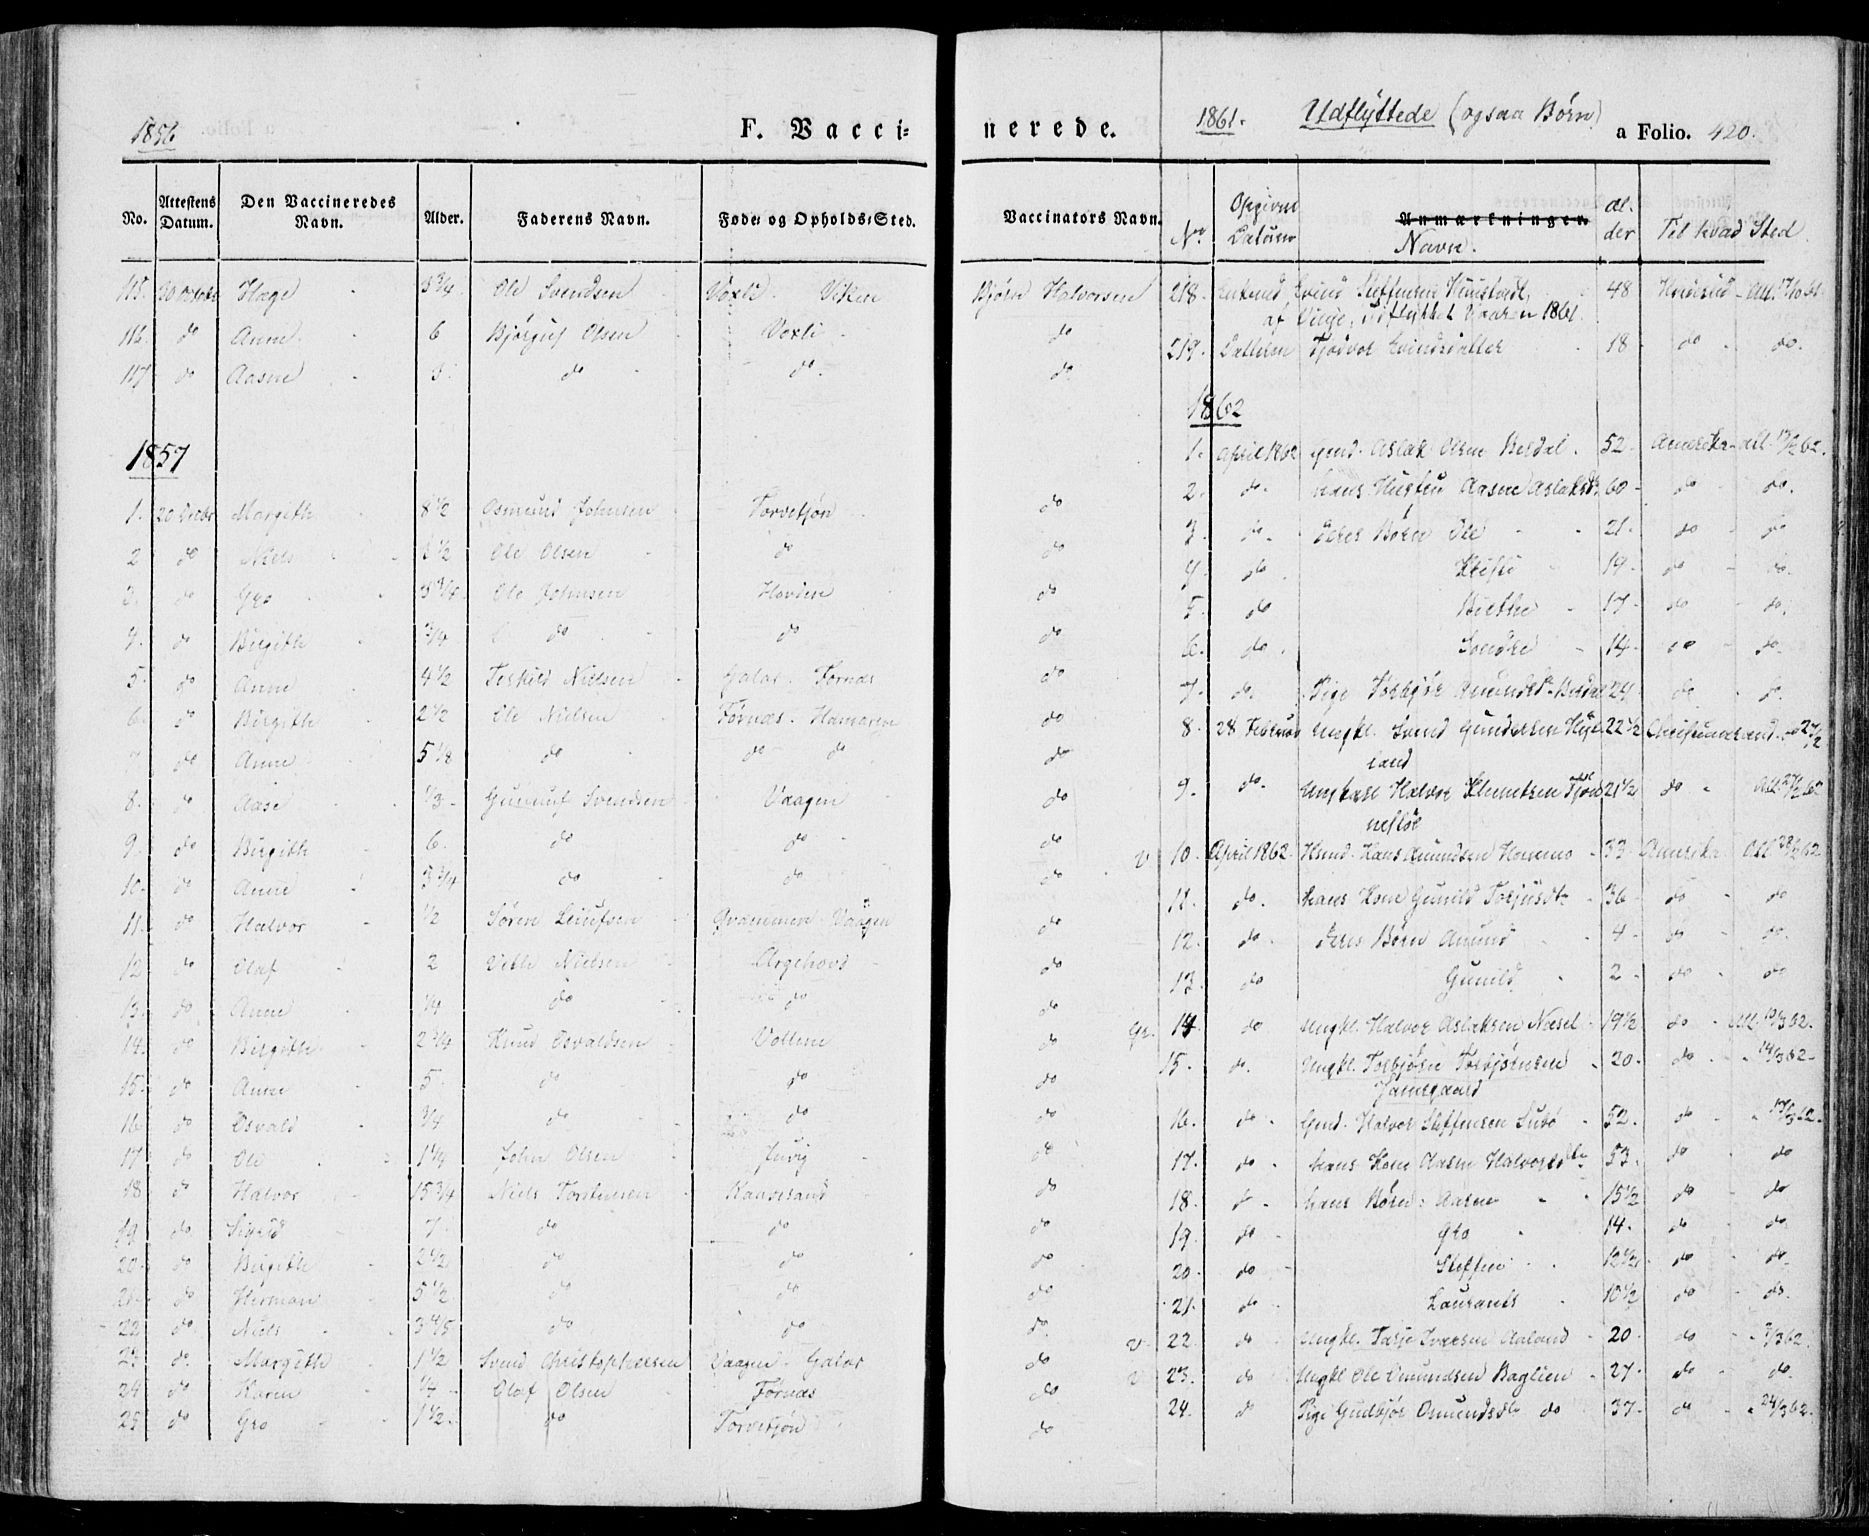 1856 F. Vacci-
No. Attestens Datum. Den Vaccineredes Navn. Alder. Faderens Navn. Føde- og Opholds-Sted.
115. 20 Octobr Hæge 3/4 Ole Svendsen Voxli. Viken
116. do Anne 6 Bjørguf Olsen Voxli
117 do Aasne do do
1857
1. 20 Decbr Margith 8 1/2 Osmund Johnsen Torvetjøn
2 do Niels 1/2 Ole Olsen do
3. do Gro 3/4 Ole Johnsen Hovden
4. do Birgith 3/4 do do
5. do Anne 4 1/2 Terkild Nielsen Galar. Førnæs
6. do Birgith 2 1/2 Ole Nielsen Førnæs. Hamaren
7 do Anne 5 1/8 do do do
8. do Aase 1/3 Gunnuf Svendsen Vaagen
9. do Birgith 6. do do
10. do Anne 3 3/4 do do
11. do Halvor 1/2 Søren Leiufsen Qvammen. Vaagen
12 do Olaf 2 Vetle Nielsen Argehovd
13. do Anne 1/4 do do
14. do Birgith 2 3/4 Knud Osvaldsen Vollene
15. do Anne 5. do do
16 do Osvald 3/4 do do
17 do Ole 1 1/4 John Olsen Juvig
18 do Halvor 15 3/4 Niels Torstensen Raavesand
19 do Sigrid 7. do do
20. do Birgith 2 1/2 do do
21. do Herman 5 1/2 do do
22 do Niels 3 4/5 do do
23 do. Margith 1 1/2 Svend Christophersen Vaagen. Galar
24 do Karen 1/4 Olaf Olsen Førnæs
25 do Gro 1 1/2. do Torvetjøn
nerede. 1861. Udflyttede (ogsaa Børn) a Folio. 420.
Vaccinators Navn. No. Opgivne Datum Anmærkninger. Navn. Al-der Til hvad Sted.
Bjørn Halvorsen 218. Enkemd. Evind Steffensen 48 Att. 17/10 61.
af Vinje, udflyttet Vaaren 1861.
do 219. Datteren Tjodvor Evindsdatter 18 do do.
do
1862
1. April 1862 Gmd. Aslak Olsen Berdal. 52 Amerika Att. 13/2 62.
do 2. do. hans Hustru Aasne Aslaksdr 60 do do.
do 3 do. deres Børn Ole 21. do do
do 4. do. 19. do do.
do 5. do Birthe 17. do do.
do 6. do. Sondre 14. do do.
do 7. do. Pige Torbjør Amundsdr. Berdal 24 do do.
do 8. 28 Februar Ungkl. Svend Gundersen Hyl- 22 1/2 Christiansand. 27/2
land
do 9. do. Ungkarl Halvor Klemetsen Tjøn- 21 1/2 do Att 27/2 62
neflot
do v 10. April 1862. Hmd. Hans Amundsen Hommo 33 Amerika Att 28/2 62
do 11. do. hans Kone Gunild Torjusdr. 36 do do
do 12. do. deres Børn Amund 4 do do.
do 13. do Gunild 2 do do
do Gr. 14 do Ungkl. Halvor Aslaksen Næset 19 1/2 do Att. 10/3 62.
do 15. do. Ungkl. Torbjørn Torbjørnsen 20. do 14/3 62
Jamsgaard
do 16. do Gmd. Halvor Steffensen Subø 52. do 17/3 62.
do 17. do hans Kone Aasne Halvorsdtr 53. do do
do 18. do hans Børn: Aasne 15 1/2 do do
do 19. do Gro 14. do do.
do 20. do Steffen 12 1/2 do do.
do 21. do Laurants 10 1/2 do do.
do. v 22. do Ungkl. Tarje Iversen Aaland 20 do 7/3 62.
do v 23. do Ungkl Ole Omundsen Baglien 27. do do.
do 24. do Pige Gudbjør Osmundsdtr do 37. do 24/3 62.
do